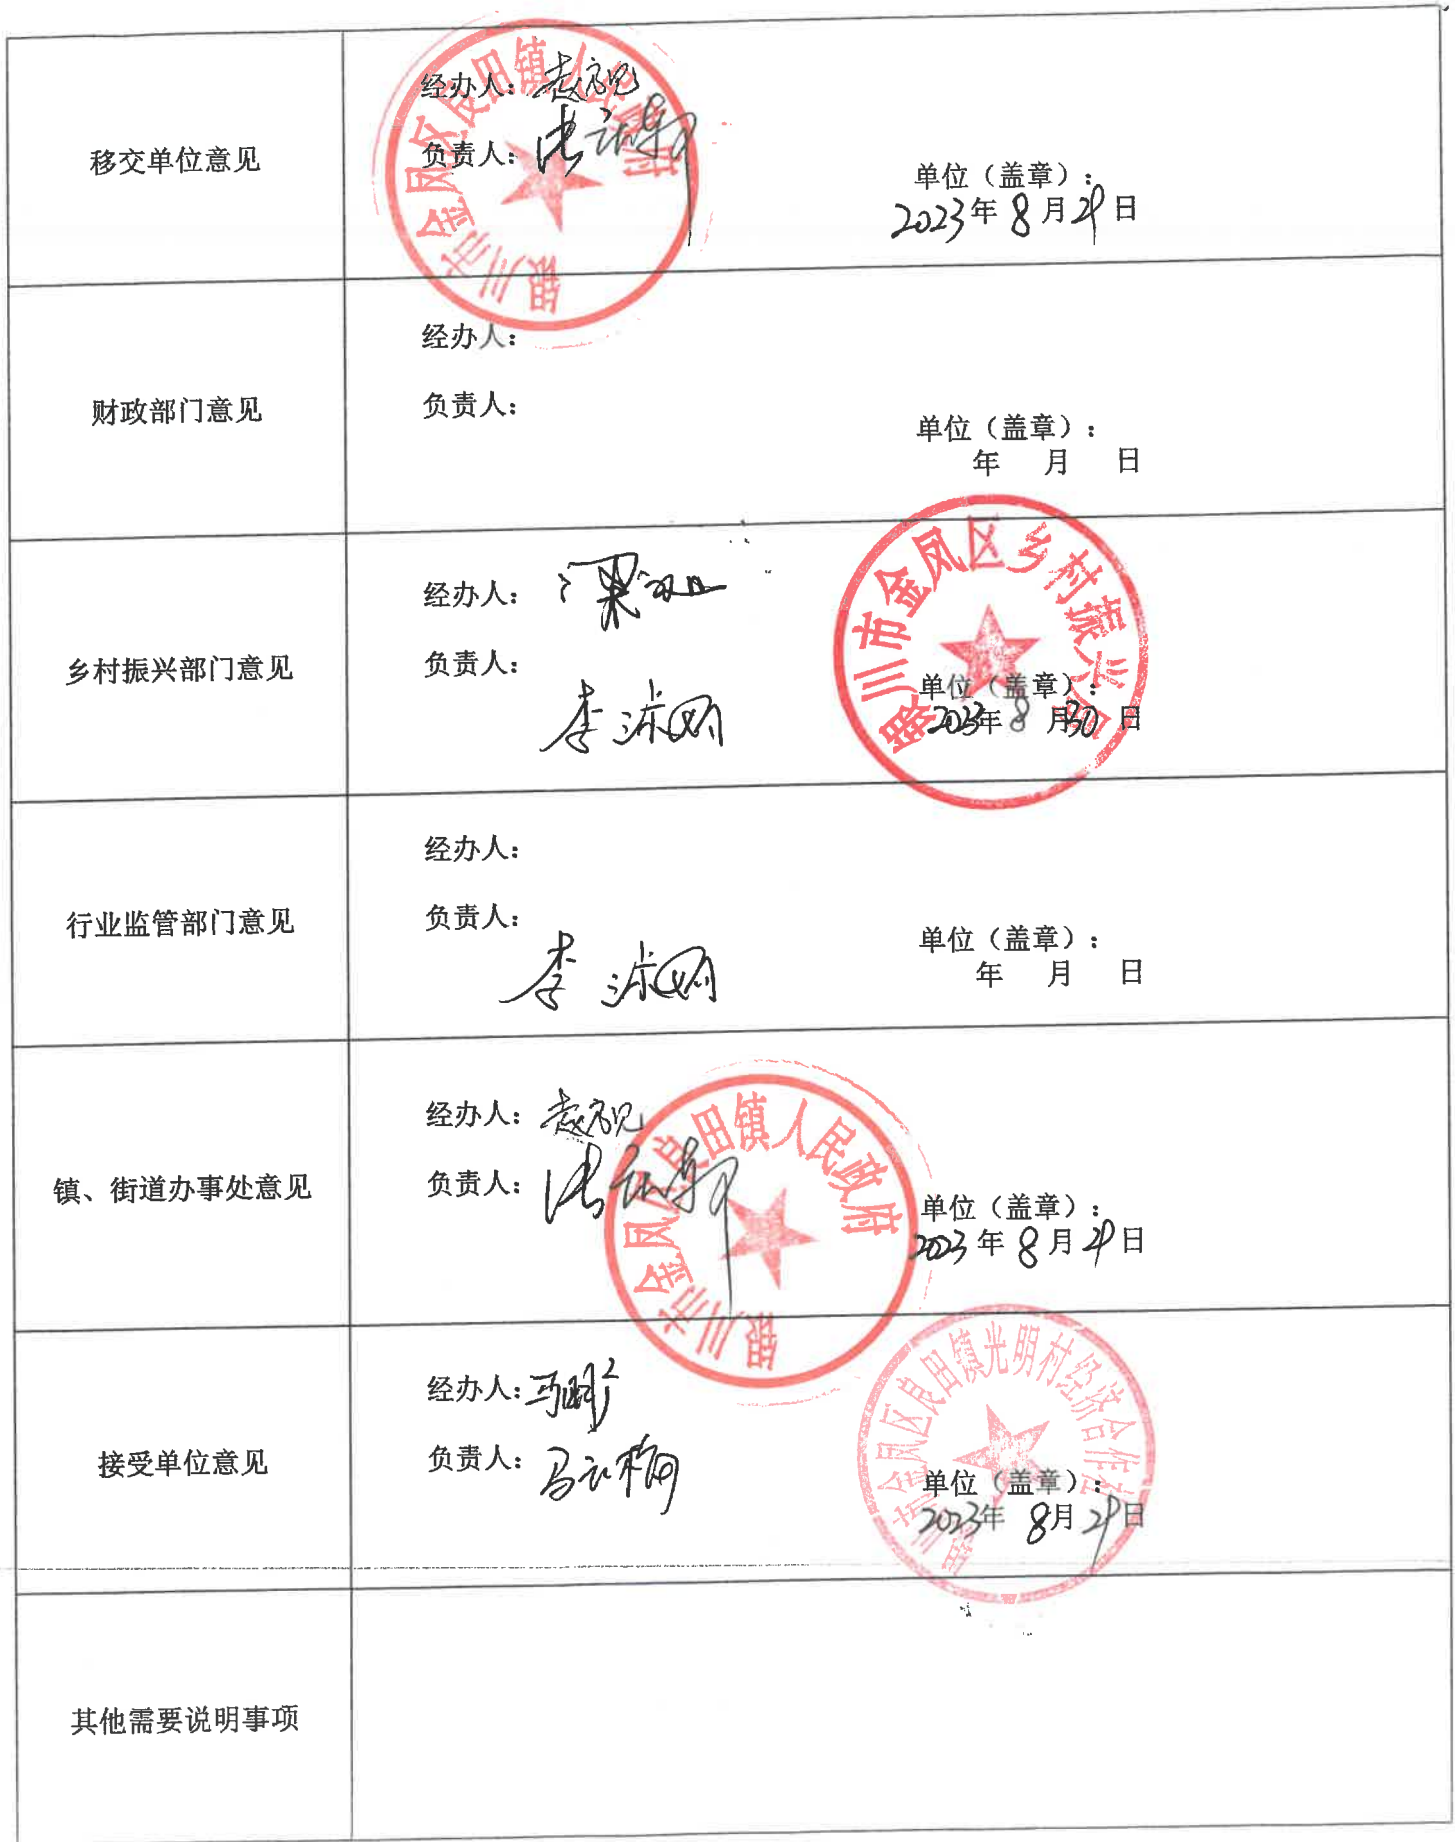 移交单位意见
经办人：
负责人：
单位（盖章）：
2023年8月29日
银川市金凤区良田镇人民政府
财政部门意见
经办人：
负责人：
单位（盖章）：
年 月 日
乡村振兴部门意见
经办人：
负责人：
单位（盖章）：
2023年8月30日
银川市金凤区乡村振兴局
行业监管部门意见
经办人：
负责人：
单位（盖章）：
年 月 日
镇、街道办事处意见
经办人：
负责人：
单位（盖章）：
2023年8月29日
银川市金凤区良田镇人民政府
接受单位意见
经办人：
负责人：
单位（盖章）：
2023年8月29日
银川市金凤区良田镇光明村经济合作社
其他需要说明事项